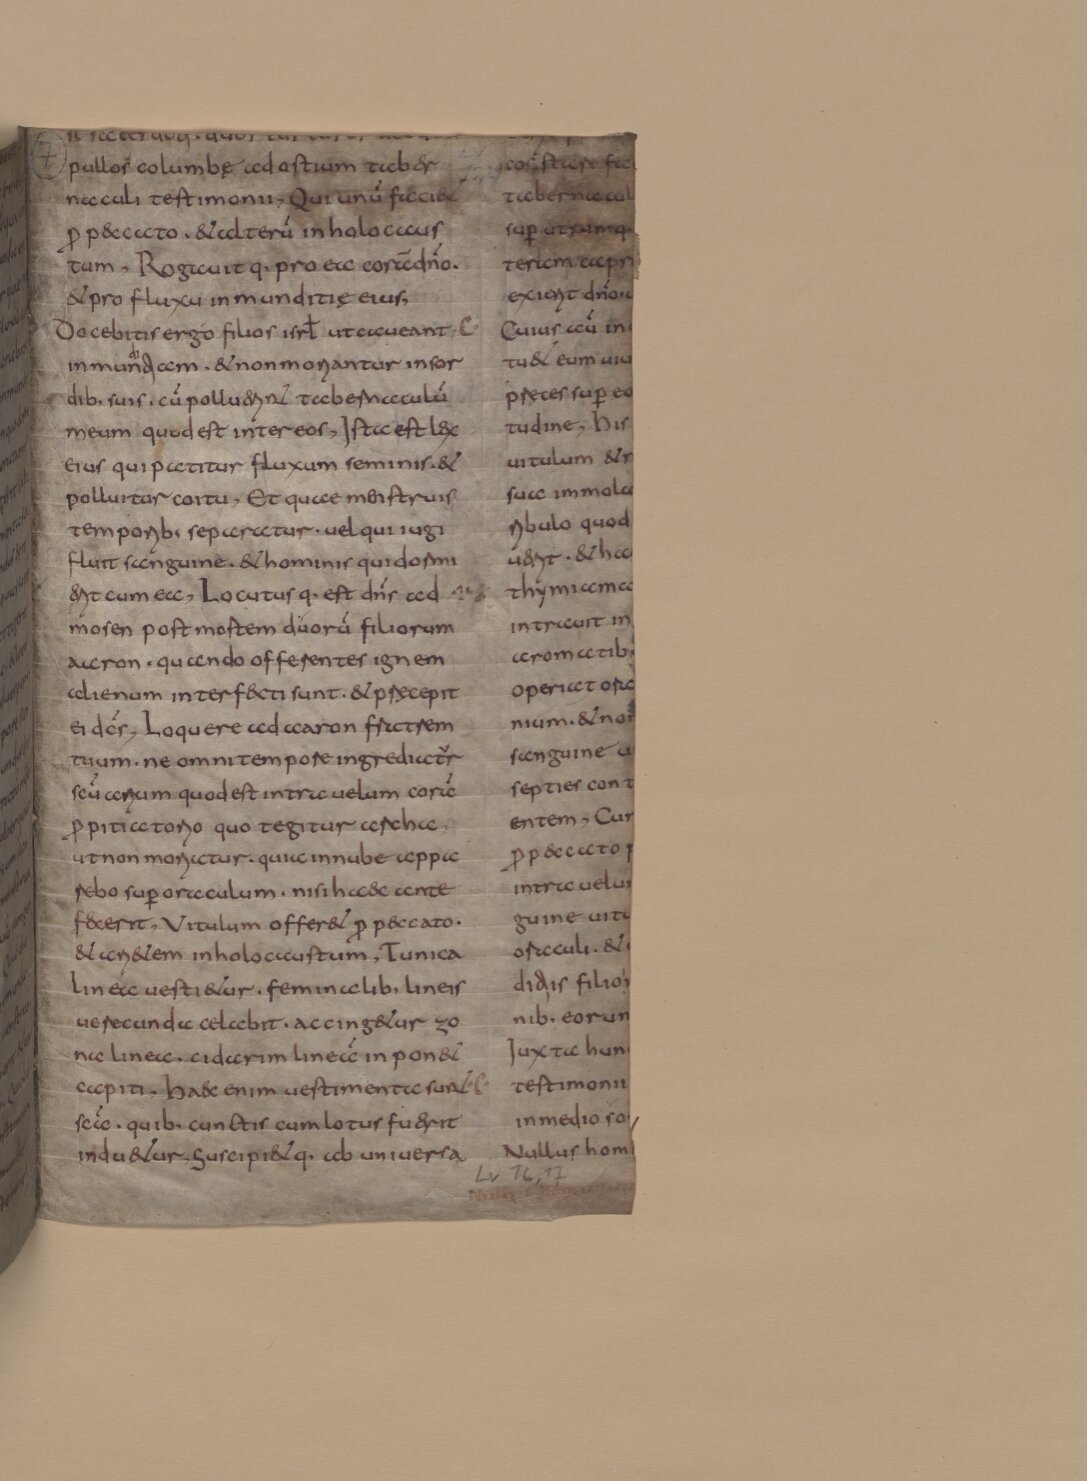 7
pullos columbę ad ostium taber
naculi testimonii, Qui unū faciet
ꝓ peccato . & alterū in holocaus
tum, Rogavit q. pro ea corā dño.
& pro fluxu inmunditię eius,
Docebitis ergo filios isrł ut caveant
inmunditiam . & non moriantur in sor
dib. suis . cū polluerint tabernaculū
meum quod est inter eos, Ista est lex
eius qui patitur fluxum seminis . &
polluitur coitu, Et quae menstruis
temporib. separatur . vel qui iugi
fluit sanguine . & hominis qui dormi
erit cum ea, Locutus q. est dñs ad
mosen post mortem duorū filiorum
aaron . quando offerentes ignem
alienum interfecti sunt . & praecepit
ei dc̄s, Loquere ad aaron fratrem
tuum . ne omni tempore ingrediat̄r
scūarium quod est intra velum corā
ꝓpitiatorio quo tegitur archa,
ut non moriatur . quia in nube appa
rebo suꝑ oraculum . nisi haec ante
fecerit, Vitulum offer& ꝓ peccato .
& ariet&em in holocaustum, Tunica
linea vesti&ur . feminalib. lineis
verecunda celabit . accing&ur zo
na linea . cidarim lineā inpon&
capiti, Haec enim vestimenta sunt
scā . quib. cunctis cum lotus fuerit
indu&ur, Suscipi&q. ab universa
corā stare fac
tabernacul
suꝑ utrumq.
terām capr
exierit dño.
Cuius aū in
tu& eum viv
praeces suꝑ eo
tudine, His
vitulum & r
sua immola
ribulo quod
thymiama
intravit in
aromatib.
operiat ora
nium . & non
sanguine v
septies cont
entem, Cum
ꝓ peccato p
intra velum
guine vitu
oraculi . &
filior
nib. eorum
Juxta hun
testimonii
in medio so
Nullus hom
Lv 16, 17